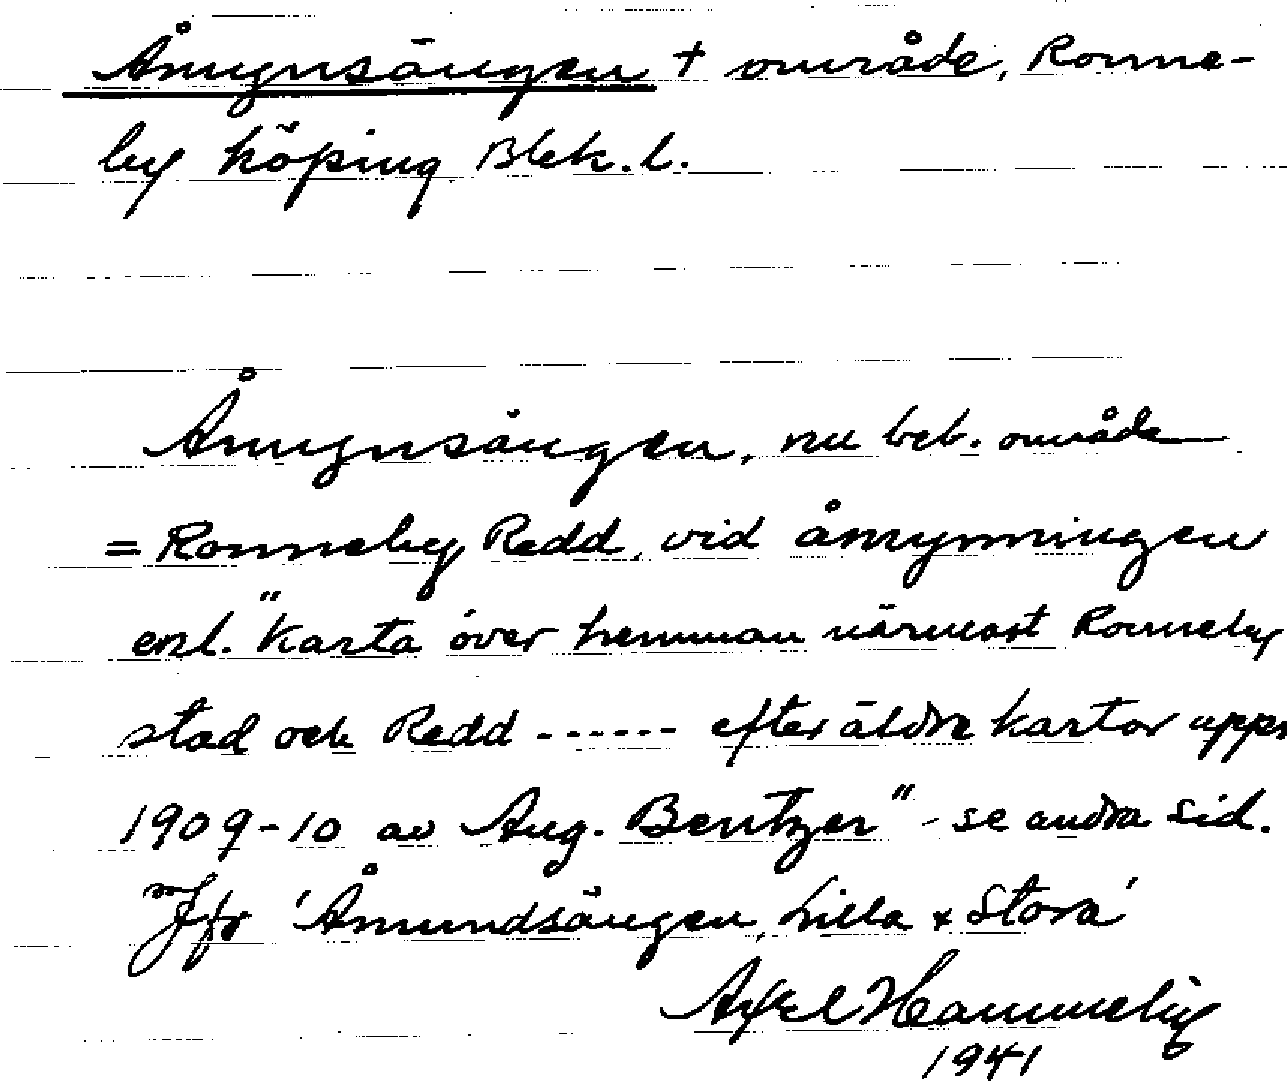 Åmynsängen + område, Ronne-
by köping Blek. l.
Åmynsängen, nu beb. område
= Ronneby Redd, vid åmynningen
enl. "Karta över hemman närmast Ronneby
stad och Redd ------ efter äldre kartor uppr
1909-10 av Aug. Bentzer" - se andra sid.
Jfr 'Åmundsängen, Lilla & Stora'
Axel Hammeby
1941